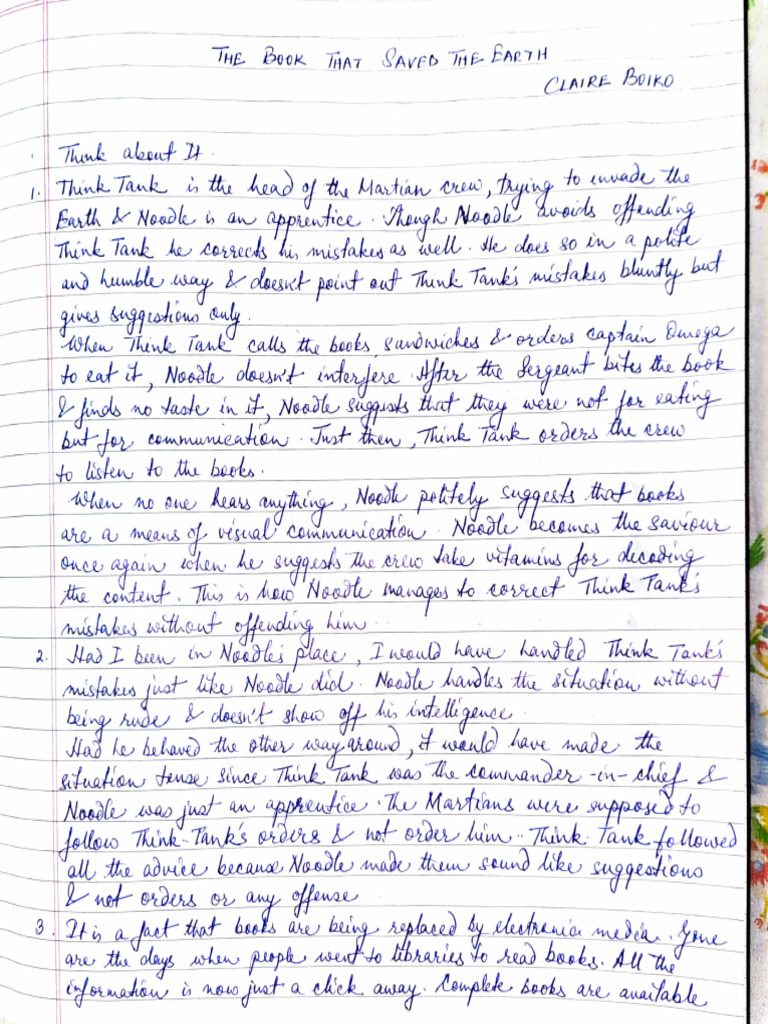 THE BOOK THAT SAVED THE EARTH
CLAIRE BOIKO
Think about It.
1. Think Tank is the head of the Martian crew, trying to invade the
Earth & Noodle is an apprentice. Though Noodle avoids offending
Think Tank he corrects his mistakes as well. He does so in a polite
and humble way & doesn't point out Think Tank's mistakes bluntly but
gives suggestions only.
When Think Tank calls the books, sandwiches & orders captain Omega
to eat it, Noodle doesn't interfere. After the Sergeant bites the book
& finds no taste in it, Noodle suggests that they were not for eating
but for communication. Just then, Think Tank orders the crew
to listen to the books.
When no one hears anything, Noodle politely suggests that books
are a means of visual communication. Noodle becomes the saviour
once again when he suggests the crew take vitamins for decoding
the content. This is how Noodle manages to correct Think Tank's
mistakes without offending him.
2. Had I been in Noodle's place, I would have handled Think Tank's
mistakes just like Noodle did. Noodle handles the situation without
being rude & doesn't show off his intelligence.
Had he behaved the other way around, it would have made the
situation tense since Think Tank was the commander-in-chief &
Noodle was just an apprentice. The Martians were supposed to
follow Think-Tank's orders & not order him. Think-Tank followed
all the advice because Noodle made them sound like suggestions
& not orders or any offense.
3. It is a fact that books are being replaced by electronic media. Gone
are the days when people went to libraries to read books. All the
information is now just a click away. Complete books are available